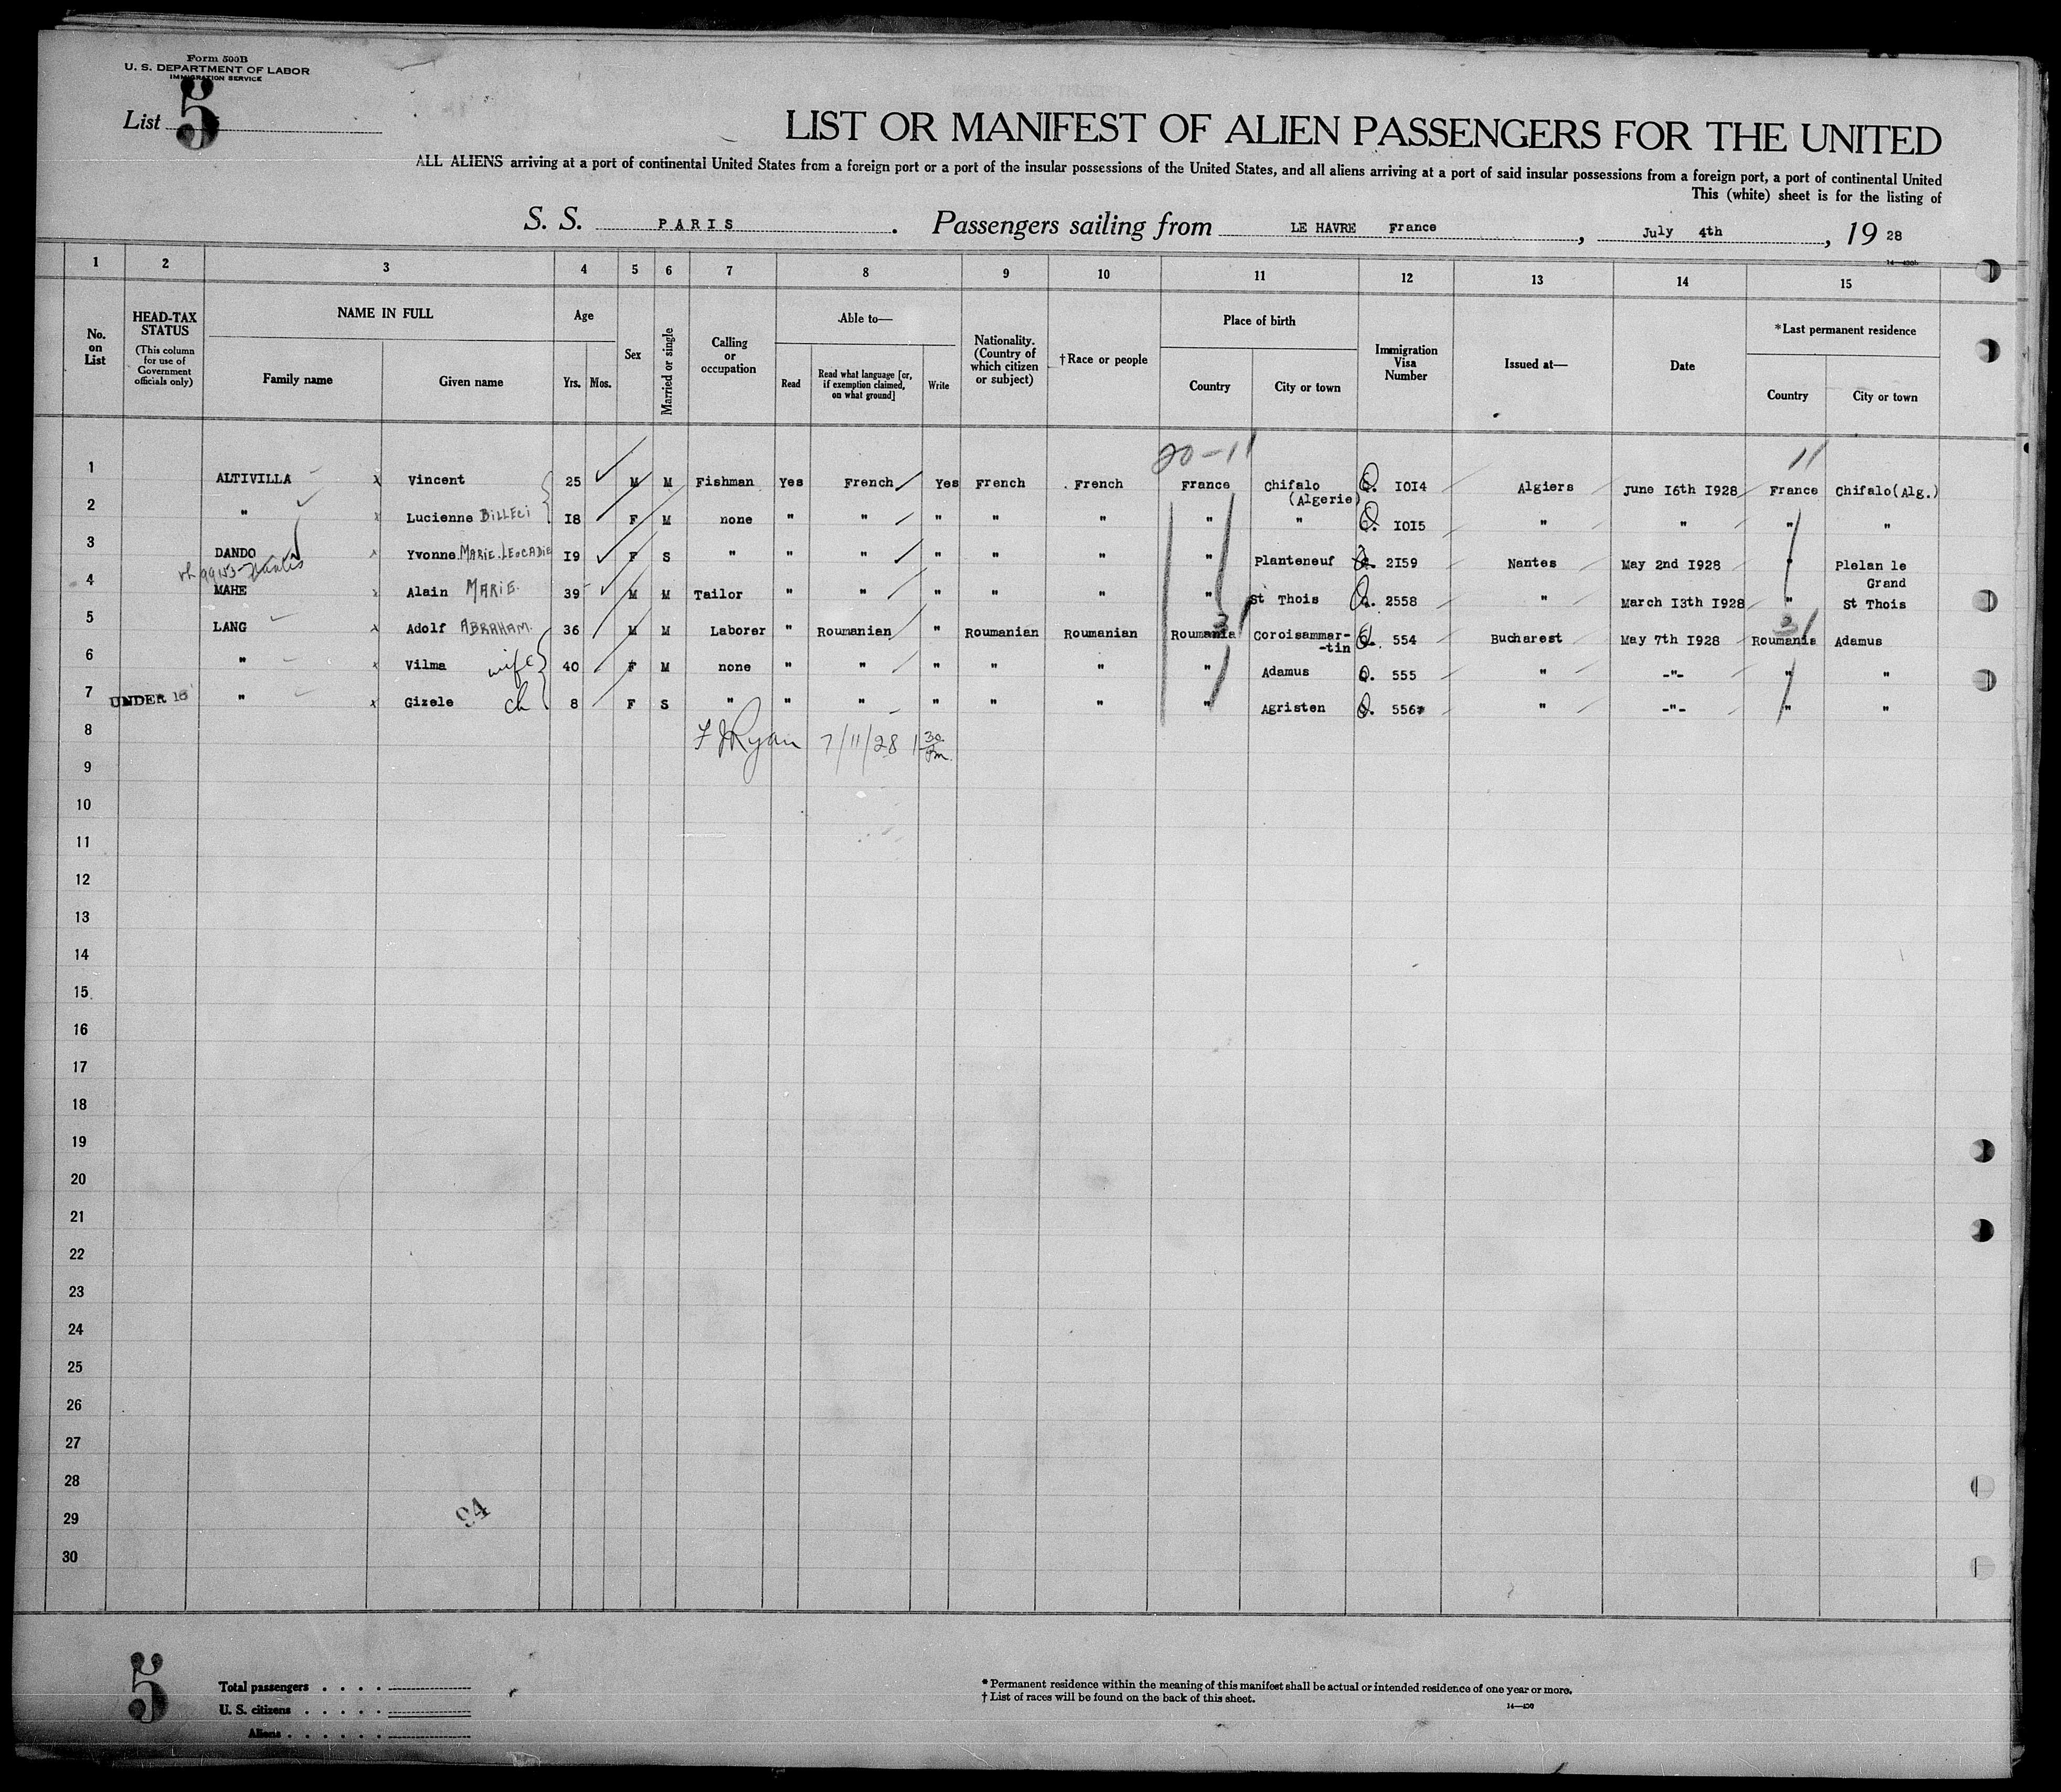 Form 500B
U. S. DEPARTMENT OF LABOR
IMMIGRATION SERVICE
List 5
LIST OR MANIFEST OF ALIEN PASSENGERS FOR THE UNITED
ALL ALIENS arriving at a port of continental United States from a foreign port or a port of the insular possessions of the United States, and all aliens arriving at a port of said insular possessions from a foreign port, a port of continental United
This (white) sheet is for the listing of
S. S. PARIS. Passengers sailing from LE HAVRE France, July 4th, 19 28
14—430b
1 2 3 4 5 6 7 8 9 10 11 12 13 14 15
No. on List
HEAD-TAX STATUS (This column for use of Government officials only)
NAME IN FULL
Family name Given name
Age
Yrs. Mos.
Sex
Married or single
Calling or occupation
Able to—
Read Read what language [or, if exemption claimed, on what ground] Write
Nationality. (Country of which citizen or subject)
†Race or people
Place of birth
Country City or town
Immigration Visa Number
Issued at—
Date
*Last permanent residence
Country City or town
20-11 11
1 ALTIVILLA x Vincent 25 M M Fishman Yes French Yes French French France Chifalo (Algerie) Q. 1014 Algiers June 16th 1928 France Chifalo(Alg.)
2 " x Lucienne BILLECI 18 F M none " " " " " " " Q. 1015 " " " "
3 DANDO x Yvonne MARIE.LEOCADIE 19 F S " " " " " " " Planteneuf 2159 Nantes May 2nd 1928 " Plelan le Grand
Nantes
4 MAHE x Alain MARIE. 39 M M Tailor " " " " " " St Thois Q. 2558 " March 13th 1928 " St Thois
3 3
5 LANG x Adolf ABRAHAM. 36 M M Laborer " Roumanian " Roumanian Roumanian Roumania Coroisammar--tin Q. 554 Bucharest May 7th 1928 Roumania Adamus
6 " x Vilma wife 40 F M none " " " " " " Adamus Q. 555 " -"- " "
7 UNDER 16 " x Gizele ch 8 F S " " " " " " " Agristen Q. 556 " -"- " "
8 F J Ryan 7/11/28 1 30 Pm.
9
10
11
12
13
14
15
16
17
18
19
20
21
22
23
24
25
26
27
28
29
30
94
5
Total passengers . . . .
U. S. citizens . . . . .
Aliens . . . . . .
* Permanent residence within the meaning of this manifest shall be actual or intended residence of one year or more.
† List of races will be found on the back of this sheet.
14—430